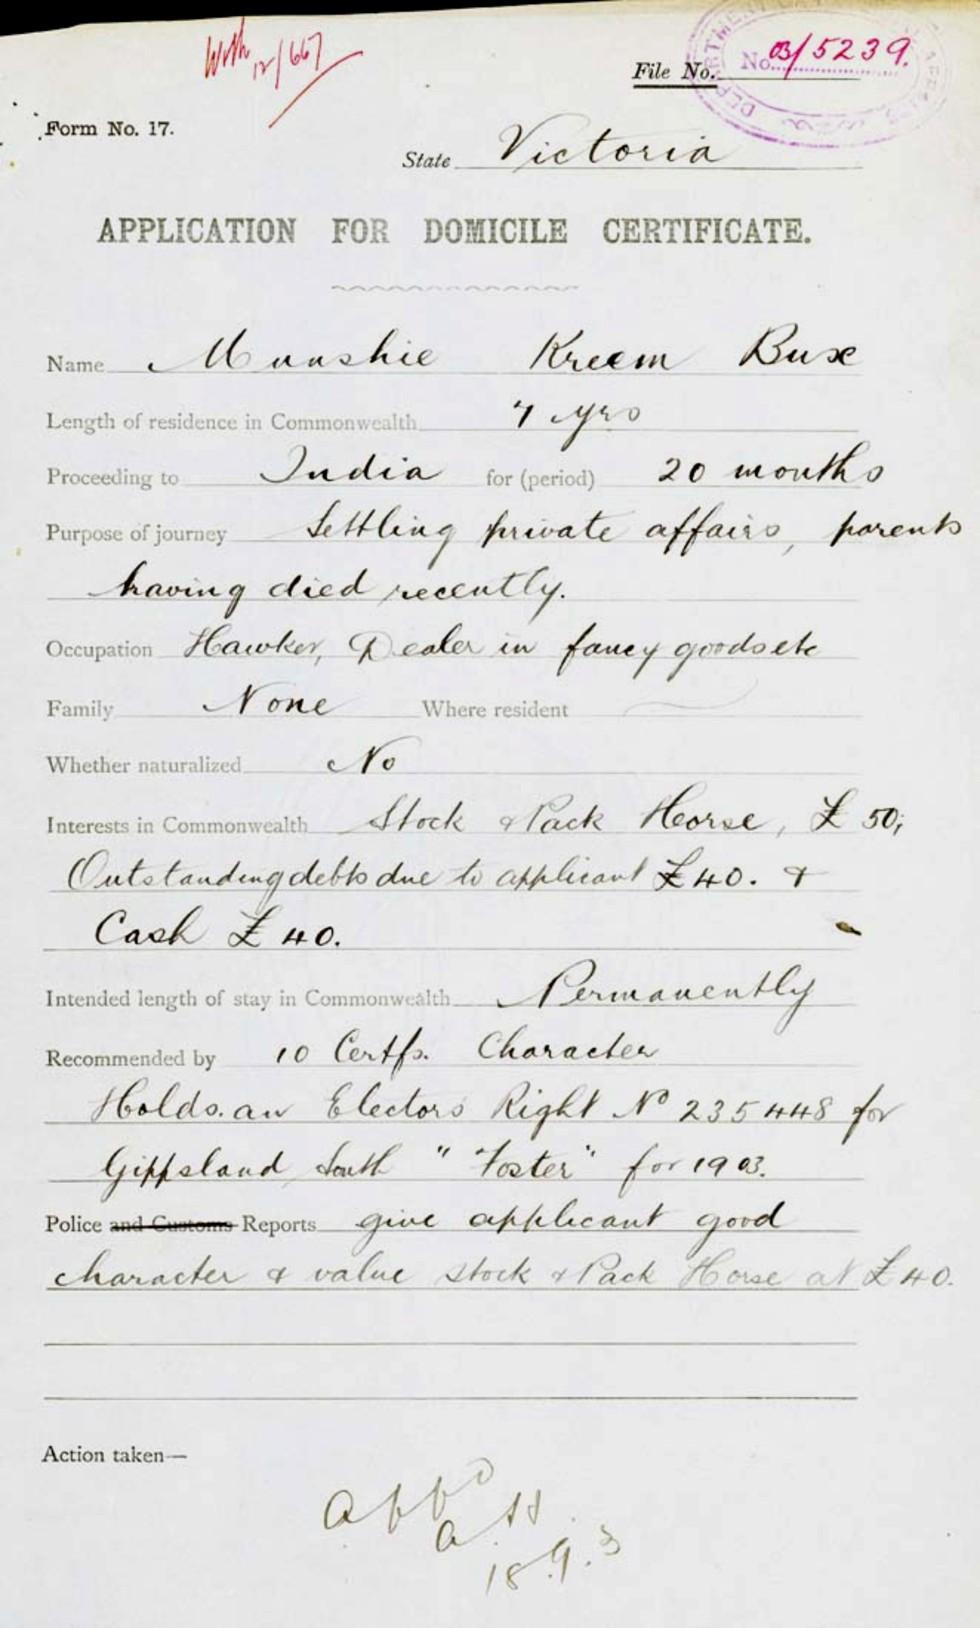 With 12/667
File No. No. 03/5239.
Form No. 17.
State Victoria
APPLICATION FOR DOMICILE CERTIFICATE.
Name Munshie Kreem Bux
Length of residence in Commonwealth 7 yrs
Proceeding to India for (period) 20 months
Purpose of journey Settling private affairs, parents
having died recently.
Occupation Hawker, Dealer in fancy goods etc
Family None Where resident
Whether naturalized No
Interests in Commonwealth Stock & Pack Horse, £50;
Outstanding debts due to applicant £40. &
Cash £40.
Intended length of stay in Commonwealth Permanently
Recommended by 10 Certfs. Character
Holds an Electors Right No 235448 for
Gippsland South "Foster" for 1903.
Police and Customs Reports give applicant good
character & value stock & Pack Horse at £40.
Action taken—
Appd
18.9.3